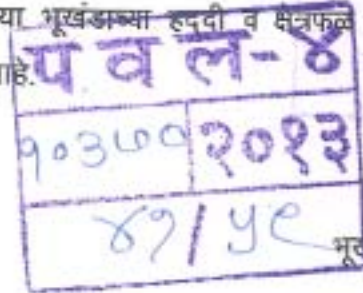 या भूखंडाच्या हद्दी व क्षेत्रफळ
आहे.
प व ल - ४
१०३७० २०१३
४१ / ५९
भूख